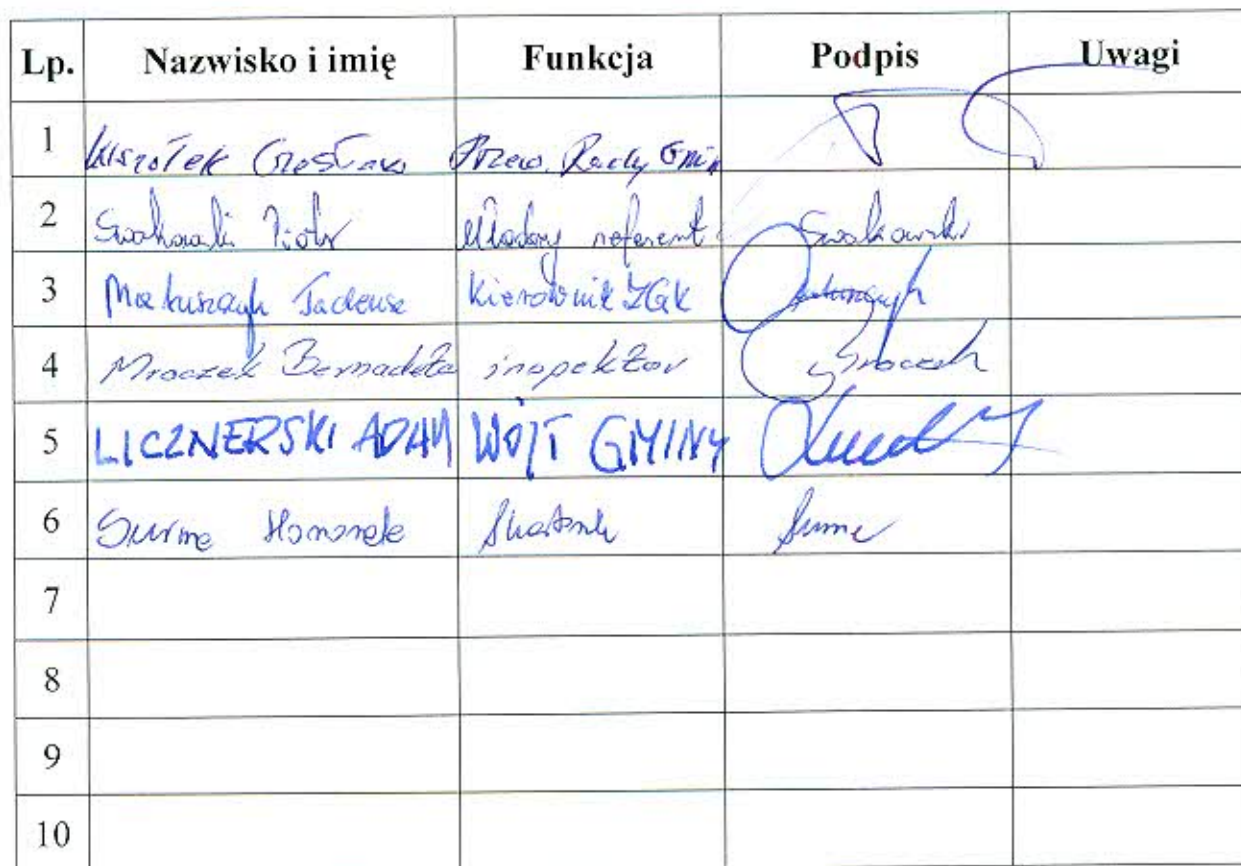 Lp. Nazwisko i imię Funkcja Podpis Uwagi
1 Czesław Przew. Rady Gmin
2 Piotr Młodszy referent Swakowski
3 Matuszczyk Tadeusz Kierownik ZGK
4 Mroczek Bernadeta inspektor Mroczek
5 LICZNERSKI ADAM WÓJT GMINY
6 Surma Honorata Skarbnik Surma
7
8
9
10